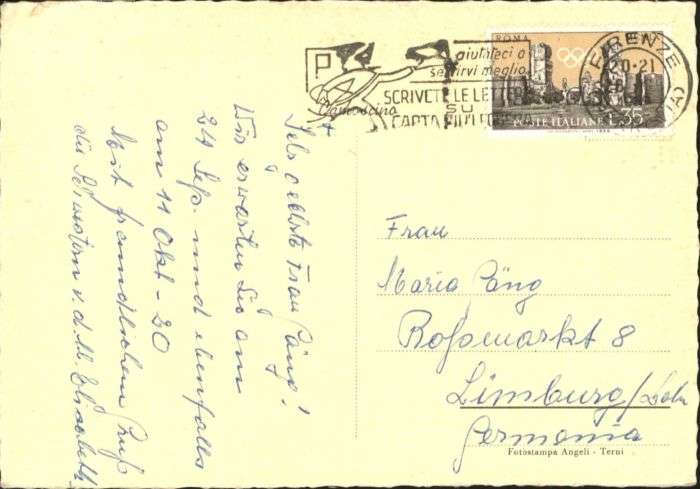 ROMA
POSTE ITALIANE L.35
FIRENZE
20-21
P
aiutateci a
servirvi meglio
SCRIVETE LE LETTERE
SU
CARTA PIU
Sehr geehrte Frau Päng!
Wir erwarten Sie am
24 Sep. und ebenfalls
am 11 Okt - 20
Mit freundlichem Gruß
die Schwestern v. d. hl. Elisabeth
Frau
Maria Päng
Roßmarkt 8
Limburg/Lahn
Germania
Fotostampa Angeli - Terni